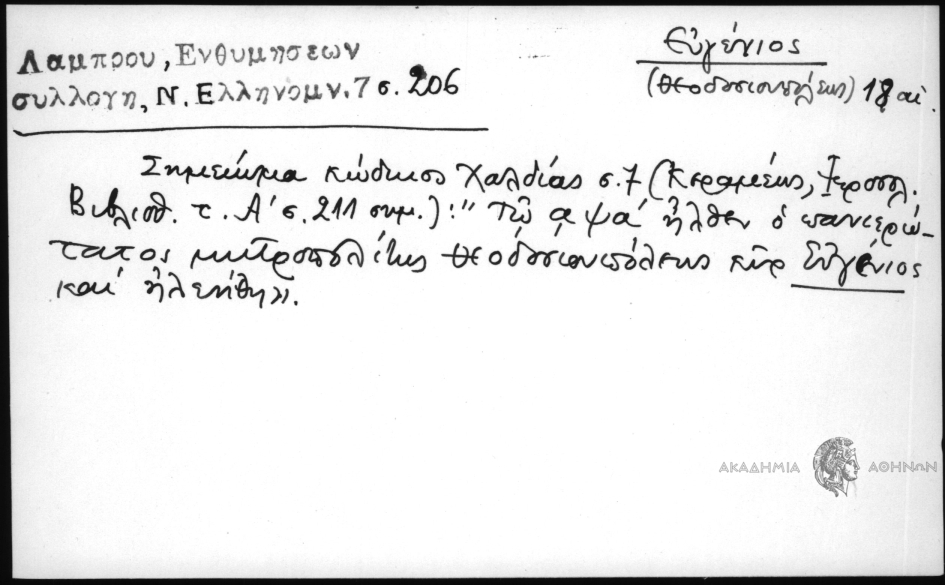 Λαμπρου, Ενθυμησεων
συλλογη, Ν. Ελληνομν. 7 σ. 206
Εὐγένιος
(Θεοδοσιουπόλεως) 18 αἰ.
Σημείωμα κώδικος Χαλδίας σ. 7 (Κεραμέως, Ἱεροσολ.
Βιβλιοθ. τ. Α' σ. 211 σημ.): "Τῷ ᾳψα' ἦλθεν ὁ πανιερώ-
τατος μητροπολίτης Θεοδοσιουπόλεως κὺρ Εὐγένιος
καὶ
ΑΚΑΔΗΜΙΑ ΑΘΗΝΩΝ